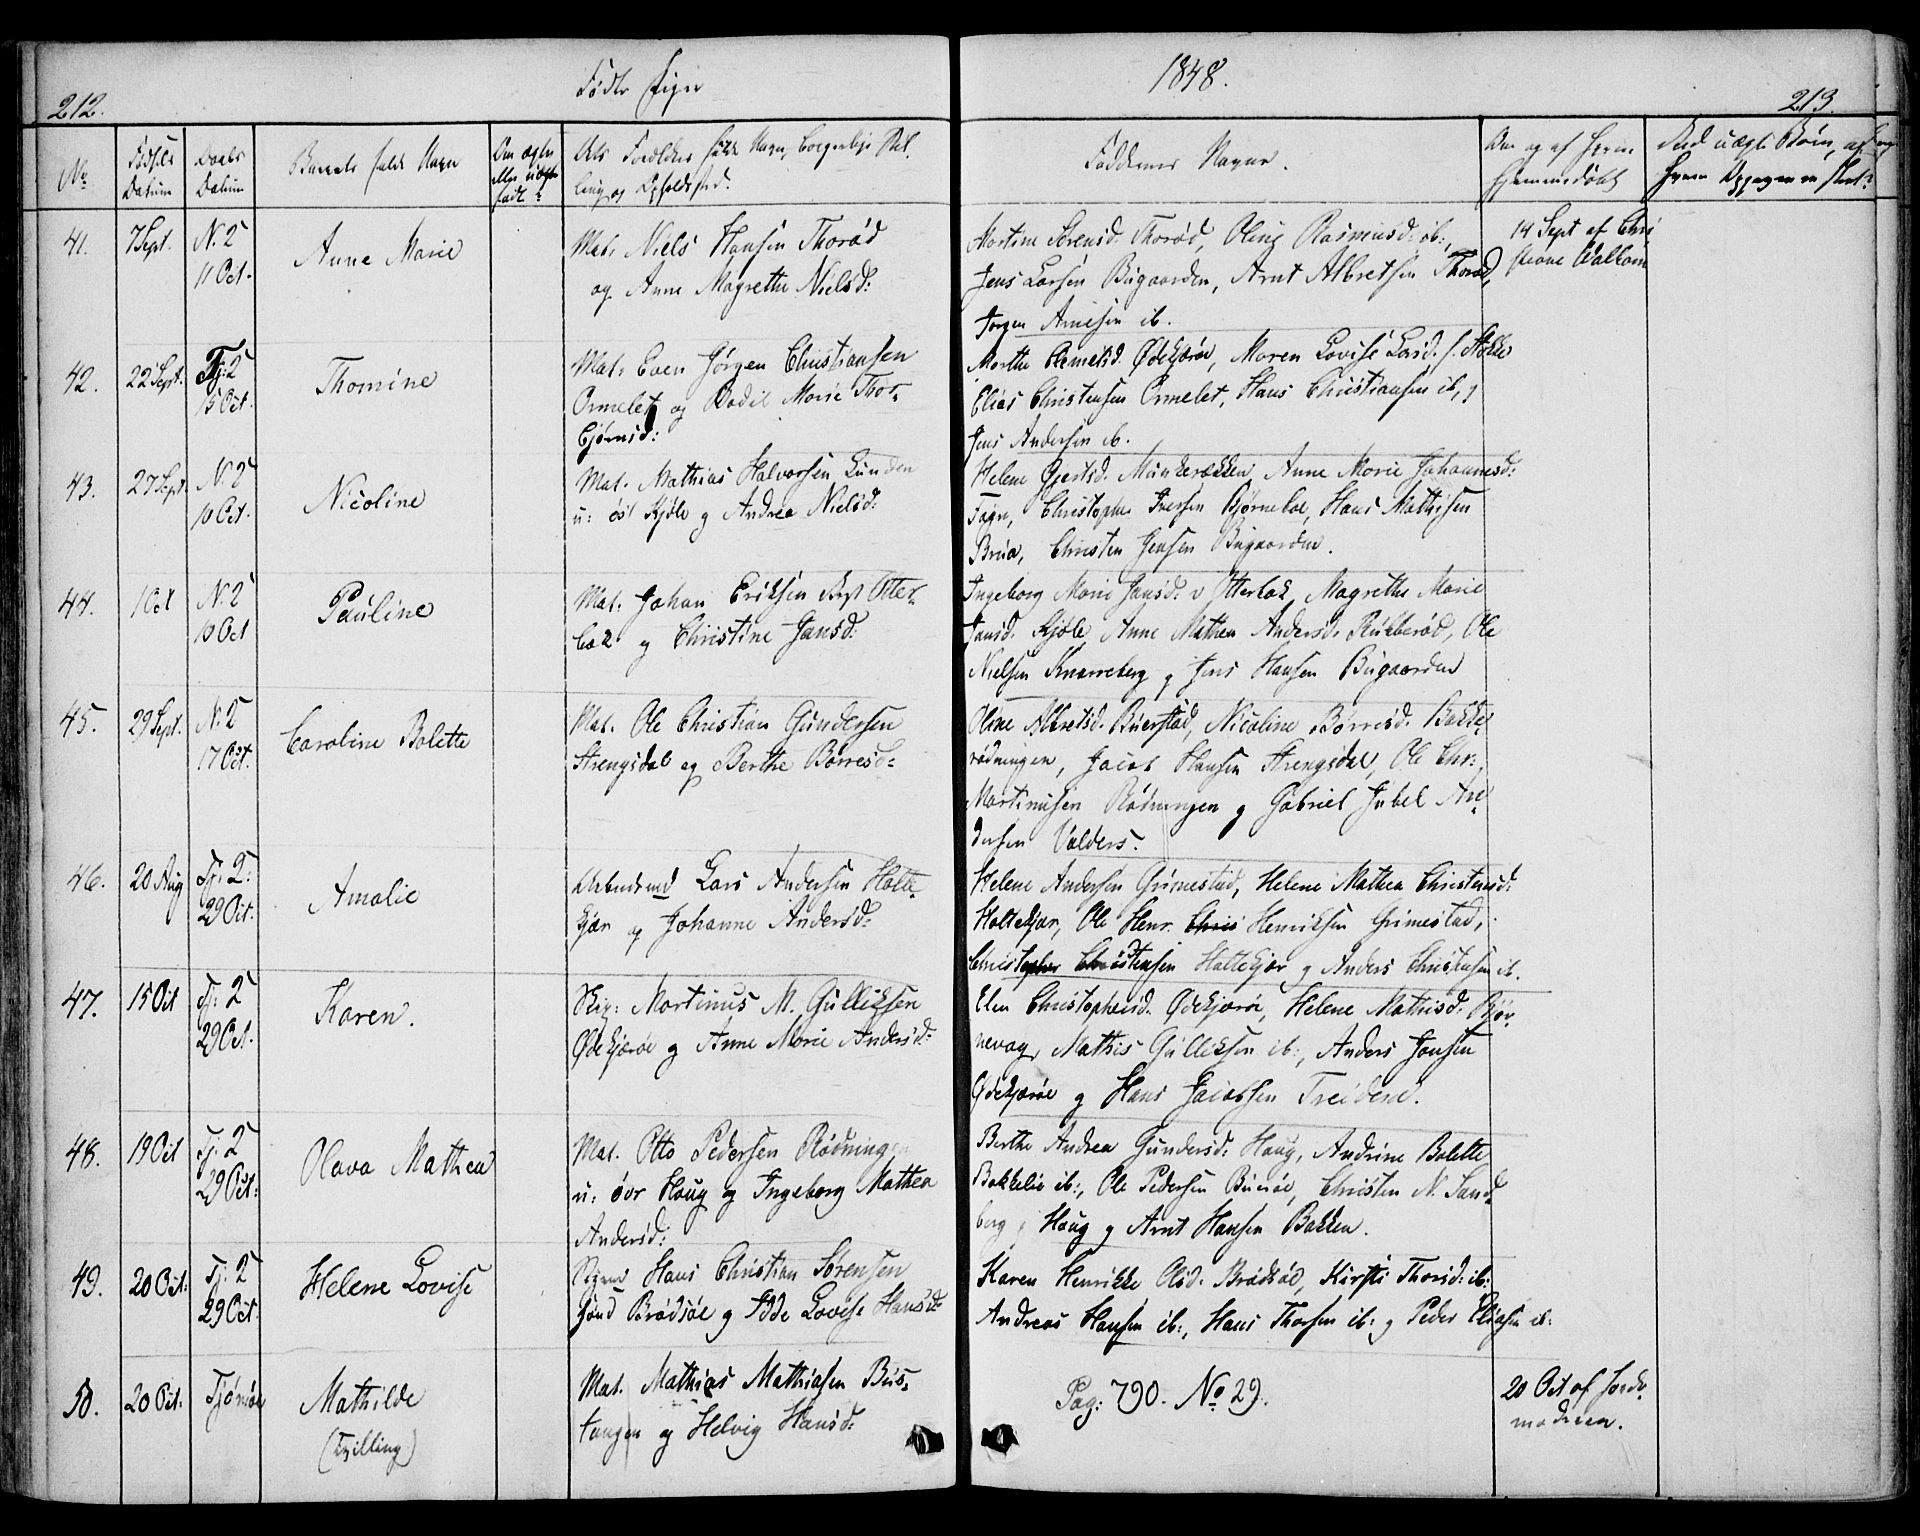 212.
Fødte Piger
1848.
213.
No
Fødsels Datum
Daabs Datum
Barnets fulde Navn
Om ægte eller uægte født?
Forældres fulde Navn, borgerlige Stilling og Opholdssted.
Faddernes Navne.
Om og af hvem hjemmedøbt
Ved uægte Børn, af
41.
7 Sept.
N. 2
11 Oct.
Anne Marie
Mat. Niels Hansen Thorød
og Anne Magrethe Nielsd:
Mortine Sørensd. Thorød, Oline Rasmusd: ib:,
Jens Larsen Bugaarden, Arnt Albretsen Thorød,
Jørgen Arnesen ib.
14 Sept af Chri
stiane
42.
22 Sept.
Tj: 2
15 Oct.
Thomine
Mat. Even Jørgen Christiansen
Ormelet og Bodil Marie Thor-
bjørnsd:
Marthe Ødekjærøe, Maren Lovise Larsd.
Elias Christensen Ormelet, Hans Christiansen ib, g
Jens Andersen ib.
43.
27 Sept.
N. 2
10 Oct.
Nicoline
Mat. Mathias Halvorsen Lunden
u: Kjøle g Andrea Nielsd:
Helene Gjertsd. Munkerækken, Anne Marie Johannesd:
Fagn, Christopher Iversen Bjørneboe, Hans Mathisen
Brua, Christen Jensen Bugaarden.
44.
1 Oct
N. 2
10 Oct
Pauline
Mat. Johan Eriksen Otter-
bæk g Christine Jansd:
Ingeborg Marie Jansd. v Otterbæk, Magrethe Marie
Jansd. Kjøle, Anne Mathea Andersd. Rukkerød, Ole
Nielsen Knarreberg g Jens Hansen Bugaarden
45.
29 Sept.
N. 2
17 Oct.
Caroline Bolette
Mat. Ole Christian Gundersen
Strengsdal og Berthe Børresd:
Oline Albretsd. Buerstad, Nicoline Børresd. Bakke
rødningen, Jacob Hansen Strengsdal, Ole Chr:
Martinusen Rødningen g Gabriel Jubel An-
dersen Valders.
46.
20 Aug
Tj. 2:
29 Oct.
Amalie
Arbeidsmd Lars Andersen Holte
kjær og Johanne Andersd:
Helene Andersen Grimestad, Helene Mathea Christensd:
Holtekjær, Ole Henr. Chris Henriksen Grimestad,
Christopher Christensen Holtekjær g Anders Christensen ib.
47.
15 Oct
Tj: 2
29 Oct.
Karen.
Skip: Martinus M. Gulliksen
Ødekjærøe g Anne Marie Andersd:
Elen Christophersd. Ødekjærøe, Helene Mathisd: Bjør-
nevaag, Mathis Gulliksen ib:, Anders Jansen
Ødekjærøe g Hans Jacobsen Treidene.
48.
19 Oct
Tj: 2
29 Oct:
Olava Mathea
Mat. Otto Pedersen Rødningen
u: øvr Haug og Ingeborg Mathea
Andersd:
Berthe Andrea Gundersd: Haug, Andrine Bolette
Bakkelie ib:, Ole Pedersen Buerøe, Christen N. Sand-
berg Haug g Arnt Hansen Bakken.
49.
20 Oct:
Tj: 2
29 Oct.
Helene Lovise
Hans Christian Sørensen
Brødsøe g Idde Lovise Hansd:
Karen Henrikke Olsd. Brødsøe, Kirsti Thorsd: ib:
Andreas Hansen ib:, Hans Thorsen ib: g Peder Eliasen ib:
50.
20 Oct:
Tjømøe
Mathilde
(Tvilling)
Mat. Mathias Mathiasen Bus-
tangen og Helvig Hansd:
Pag: 790. No 29.
20 Oct af Jorde
moderen.